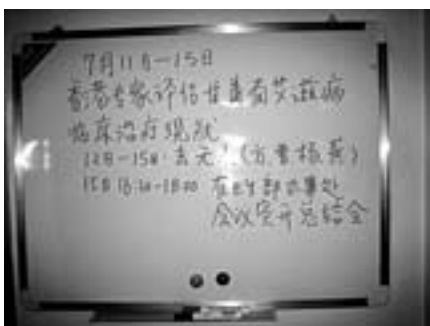 7月11日-15日
香港专家评估 有艾滋病
临床治疗现状
12日-15日 去元
15日 16:00-18:00 在 办事处
会议室开总结会